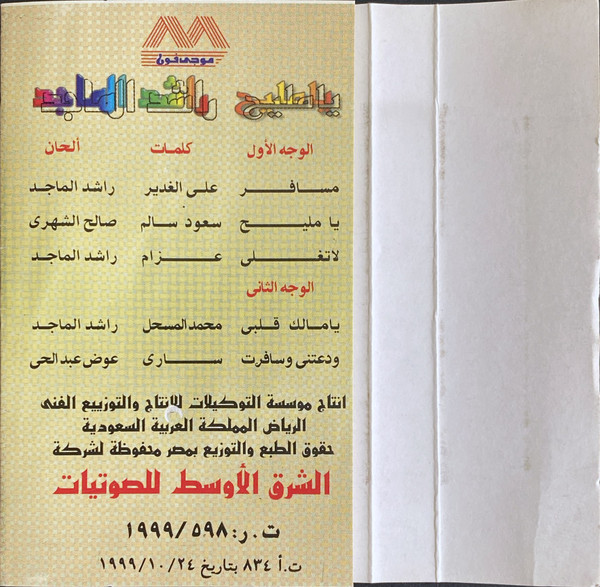 موجى فون
يا مليح راشد الماجد
الوجه الأول كلمات ألحان
مسافر على الغدير راشد الماجد
يا مليح سعود سالم صالح الشهرى
لاتغلى عزام راشد الماجد
الوجه الثانى
يامالك قلبى محمد المسحل راشد الماجد
ودعتنى وسافرت سارى عوض عبدالحى
انتاج موسسة التوكيلات للانتاج والتوزييع الفنى
الرياض المملكة العربية السعودية
حقوق الطبع والتوزيع بمصر محفوظة لشركة
الشرق الأوسط للصوتيات
ت.ر: ٥٩٨/١٩٩٩
ت.أ ٨٣٤ بتاريخ ١٩٩٩/١٠/٢٤